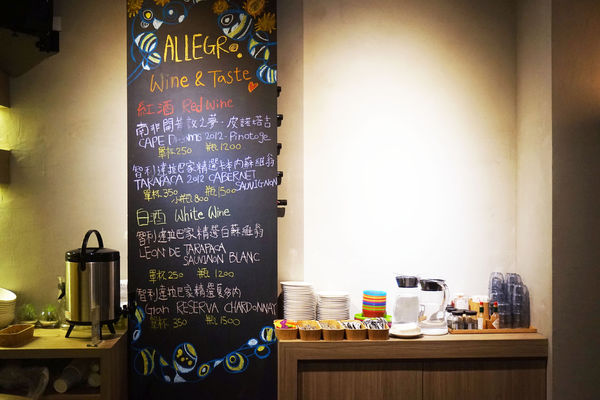 ALLEGRO.
Wine & Taste
紅酒 Red Wine
南非開普敦之夢·皮諾塔吉
CAPE Dreams 2012·Pinotage
單杯250 瓶1200
智利達拉巴家精選卡本內蘇維翁
TARAPACA 2012 CABERNET
SAUVIGNON
單杯350 瓶1500
小瓶800
白酒 White Wine
智利達拉巴家精選白蘇維翁
LEON DE TARAPACA
SAUVINON BLANC
單杯250 瓶1200
智利達拉巴家精選夏多內
Gran RESERVA CHARDONNAY
單杯350 瓶1500